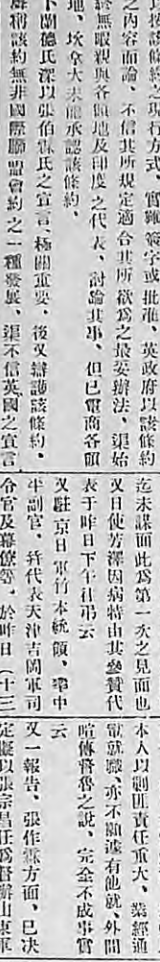 之內容而論、不信其所規定適合其所欲爲之最妥辦法、渠始
終無暇親與各領地及印度之代表、討論其事、但已電商各領
地、坎拿大未能承認該條約、
卜蘭德氏深以張伯倫氏之宣言、極關重要、後又辯護該條約、
聲稱該約無非國際聯盟會約之一種發展、渠不信英國之宣言
迄未謀面此爲第一次之見面也
又日使芳澤因病特由其參贊代
表于昨日下午往弔云
又駐京日軍竹本統領、率中
半副官、幷代表天津吉岡軍司
令官及幕僚等、於昨日（十三
本人以剿匪責任重大、業經通
電就職、亦不願遽有他就、外間
喧傳督魯之說、完全不成事實
云
又一報告、張作霖方面、已決
定擬以張宗昌任爲督辦山東軍